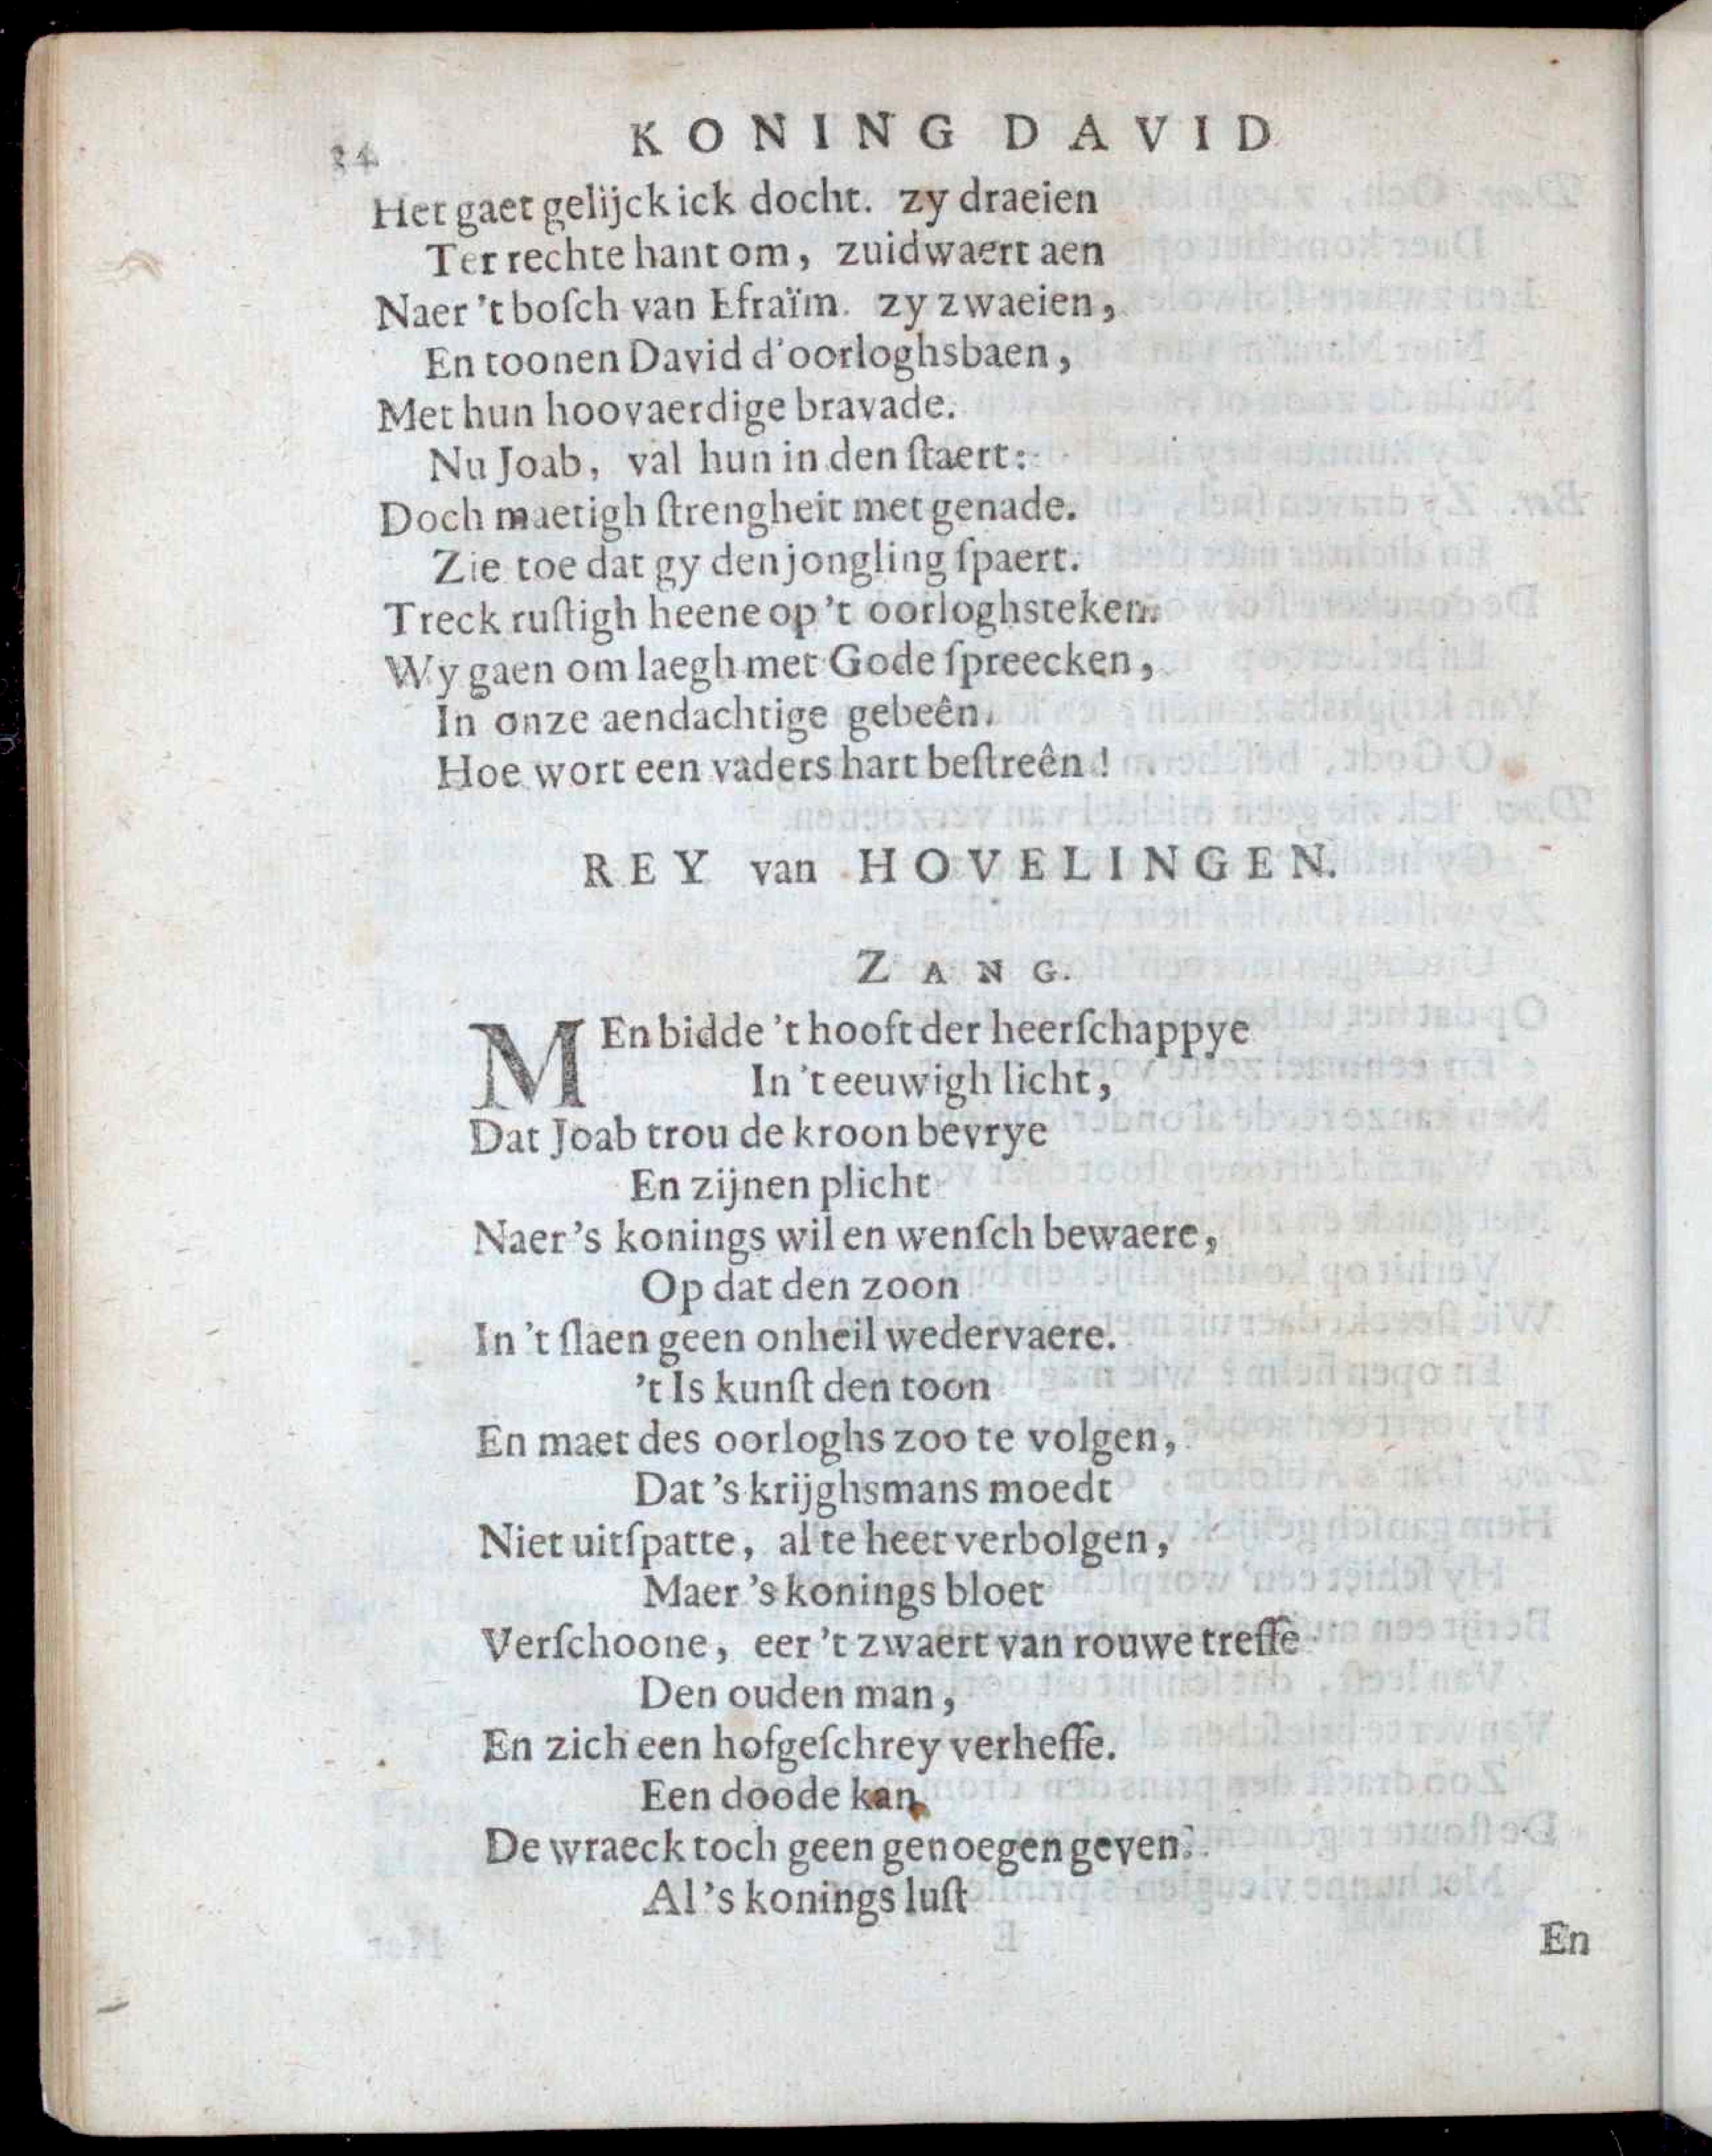 34 KONING DAVID
Het gaet gelijck ick docht. zy draeien
Ter rechte hant om, zuidwaert aen
Naer 't boſch van Efraïm. zy zwaeien,
En toonen David d'oorloghsbaen,
Met hun hoovaerdige bravade.
Nu Joab, val hun in den ſtaert:
Doch maetigh ſtrengheit met genade.
Zie toe dat gy den jongling ſpaert.
Treck ruſtigh heene op 't oorloghsteken.
Wy gaen om laegh met Gode ſpreecken,
In onze aendachtige gebeên.
Hoe wort een vaders hart beſtreên!
REY van HOVELINGEN.
ZANG.
MEn bidde 't hooft der heerſchappye
In 't eeuwigh licht,
Dat Joab trou de kroon bevrye
En zijnen plicht
Naer 's konings wil en wenſch bewaere,
Op dat den zoon
In 't ſlaen geen onheil wedervaere.
't Is kunſt den toon
En maet des oorloghs zoo te volgen,
Dat 's krijghsmans moedt
Niet uitſpatte, al te heet verbolgen,
Maer 's konings bloet
Verſchoone, eer 't zwaert van rouwe treffe
Den ouden man,
En zich een hofgeſchrey verheffe.
Een doode kan
De wraeck toch geen genoegen geven.
Al 's konings luſt
En